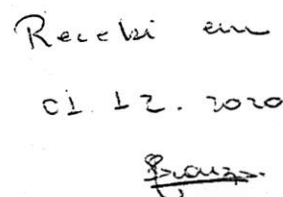 Recebi em
01.12.2020